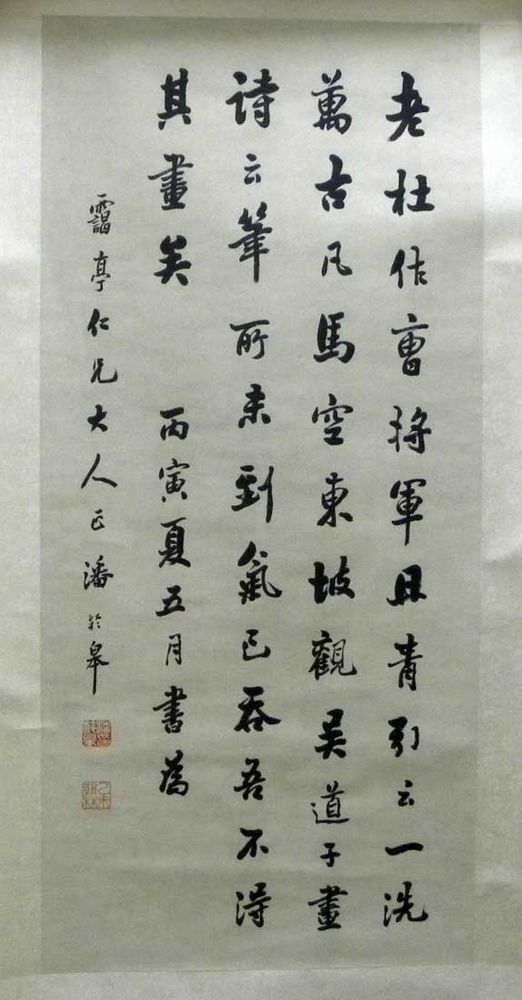 老杜作曹將軍丹青引云一洗
萬古凡馬空東坡觀吳道子畫
詩云筆所未到氣已吞吾不得
其畫矣 丙寅夏五月書為
靄亭仁兄大人正 潘齡皋